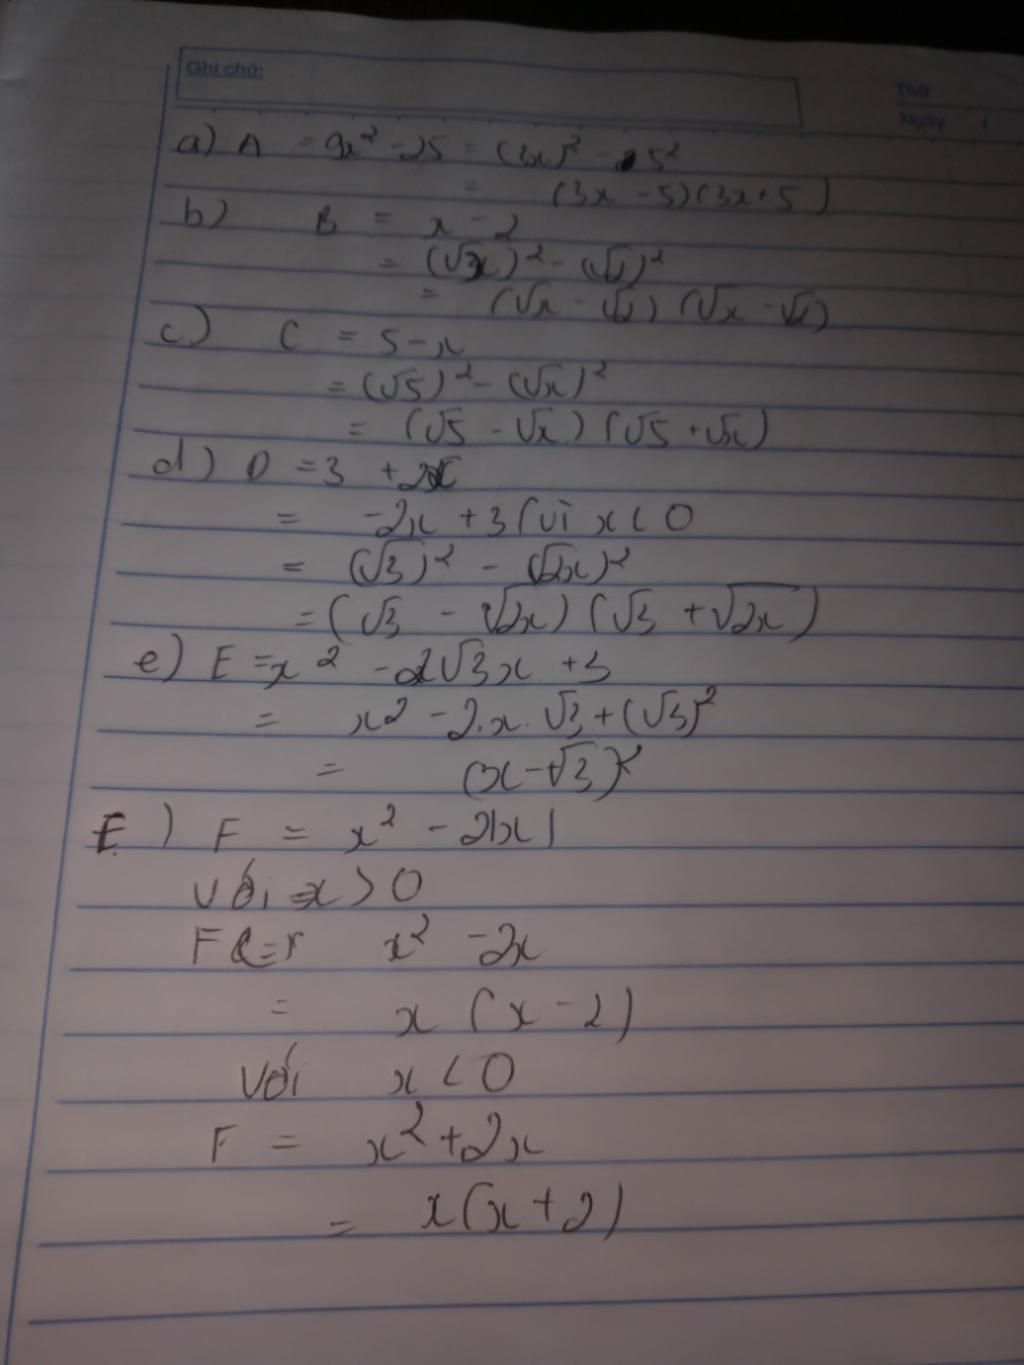 Ghi chú:
Thứ
Ngày /
a) A = 9x² - 25 = (3x)² - 5²
= (3x - 5)(3x + 5)
b) B = x - 2
= (√x)² - (√2)²
= (√x - √2) (√x - √2)
c) C = 5 - x
= (√5)² - (√x)²
= (√5 - √x) (√5 + √x)
d) D = 3 + 2x
= -2x + 3 (vì x < 0
= (√3)² - (√2x)²
= (√3 - √2x) (√3 + √2x)
e) E = x² - 2√3x + 3
= x² - 2.x.√3 + (√3)²
= (x - √3)²
F) F = x² - 2|x|
Với x > 0
F = x² - 2x
= x (x - 2)
Với x < 0
F = x² + 2x
= x(x + 2)